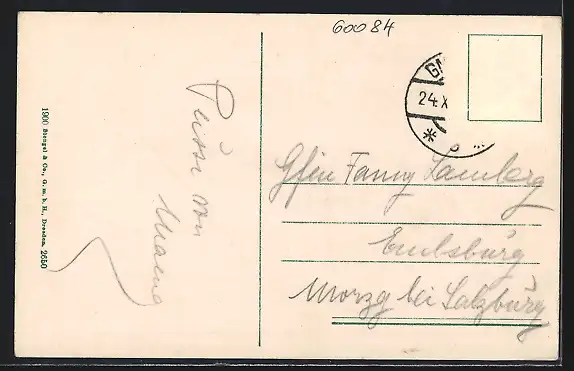 60084
GM
24.X
1900 Stengel & Co., G. m. b. H., Dresden. 2650
von
Mama
Gfin Fanny Lamberg
Emlsburg
Morzg bei Salzburg